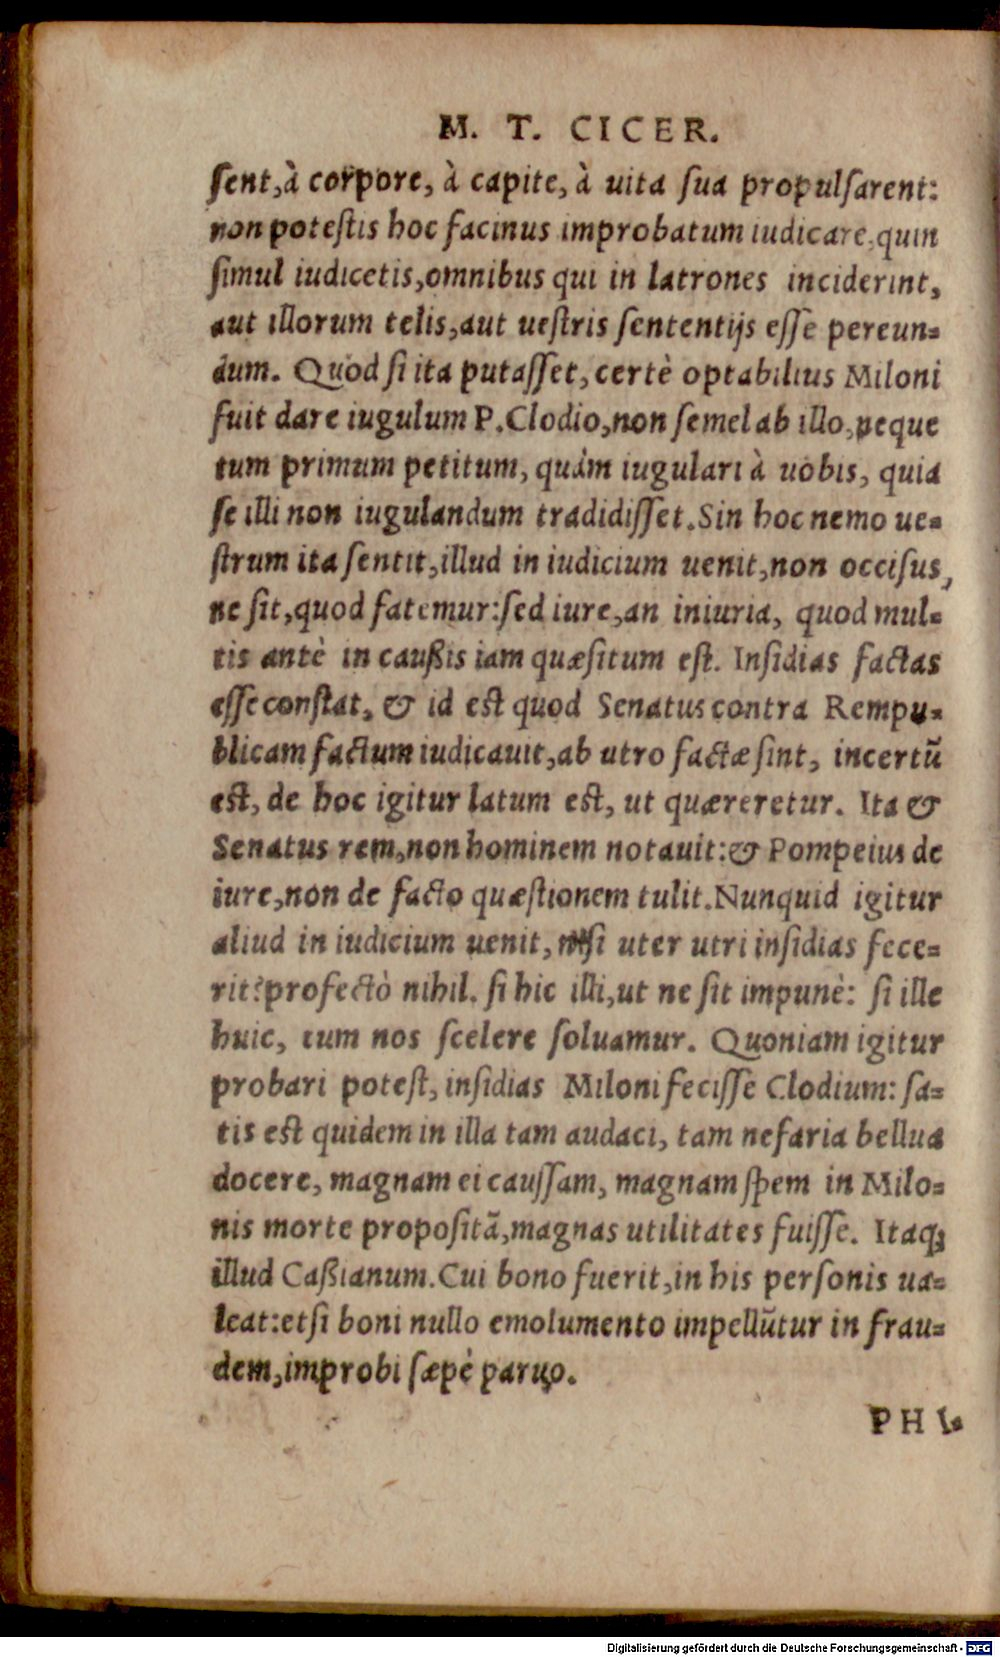 M. T. CICER.
sent,à corpore, à capite, à uita sua propulsarent:
non potestis hoc facinus improbatum iudicare,quin
simul iudicetis,omnibus qui in latrones inciderint,
aut illorum telis,aut uestris sententijs esse pereun-
dum. Quòd si ita putasset,certè optabilius Miloni
fuit dare iugulum P.Clodio,non semel ab illo,neque
tum primum petitum, quàm iugulari à uobis, quia
se illi non iugulandum tradidisset.Sin hoc nemo ue-
strum ita sentit,illud in iudicium uenit,non occisus,
ne sit,quod fatemur:sed iure,an iniuria, quod mul-
tis antè in caußis iam quæsitum est. Insidias factas
esse constat, & id est quod Senatus contra Rempu-
blicam factum iudicauit,ab utro factæ sint, incertũ
est, de hoc igitur latum est, ut quæreretur. Ita &
Senatus rem,non hominem notauit:& Pompeius de
iure,non de facto quæstionem tulit.Nunquid igitur
aliud in iudicium uenit, nisi uter utri insidias fece-
rit?profectò nihil. si hic illi,ut ne sit impunè: si ille
huic, tum nos scelere soluamur. Quoniam igitur
probari potest, insidias Miloni fecisse Clodium: sa-
tis est quidem in illa tam audaci, tam nefaria bellua
docere, magnam ei caussam, magnam spem in Milo-
nis morte propositã,magnas utilitates fuisse. Itaq;
illud Caßianum.Cui bono fuerit,in his personis ua-
leat:etsi boni nullo emolumento impellũtur in frau-
dem,improbi sæpè paruo.
PHI-
Digitalisierung gefördert durch die Deutsche Forschungsgemeinschaft - DFG